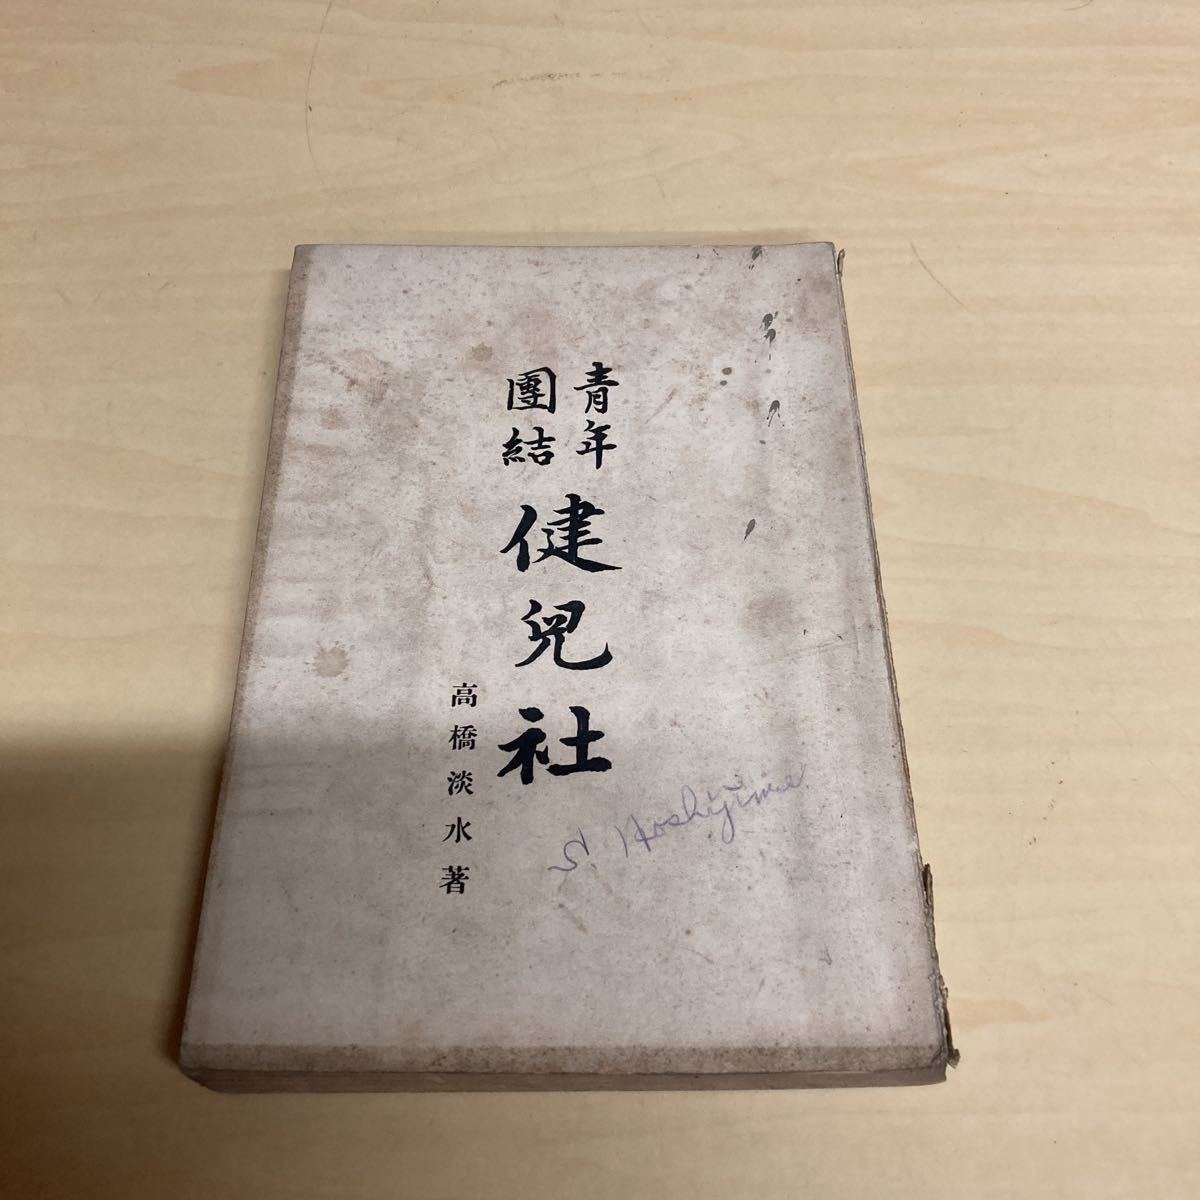 青年
團結
健兒社
高橋淡水著
S. Hoshijima